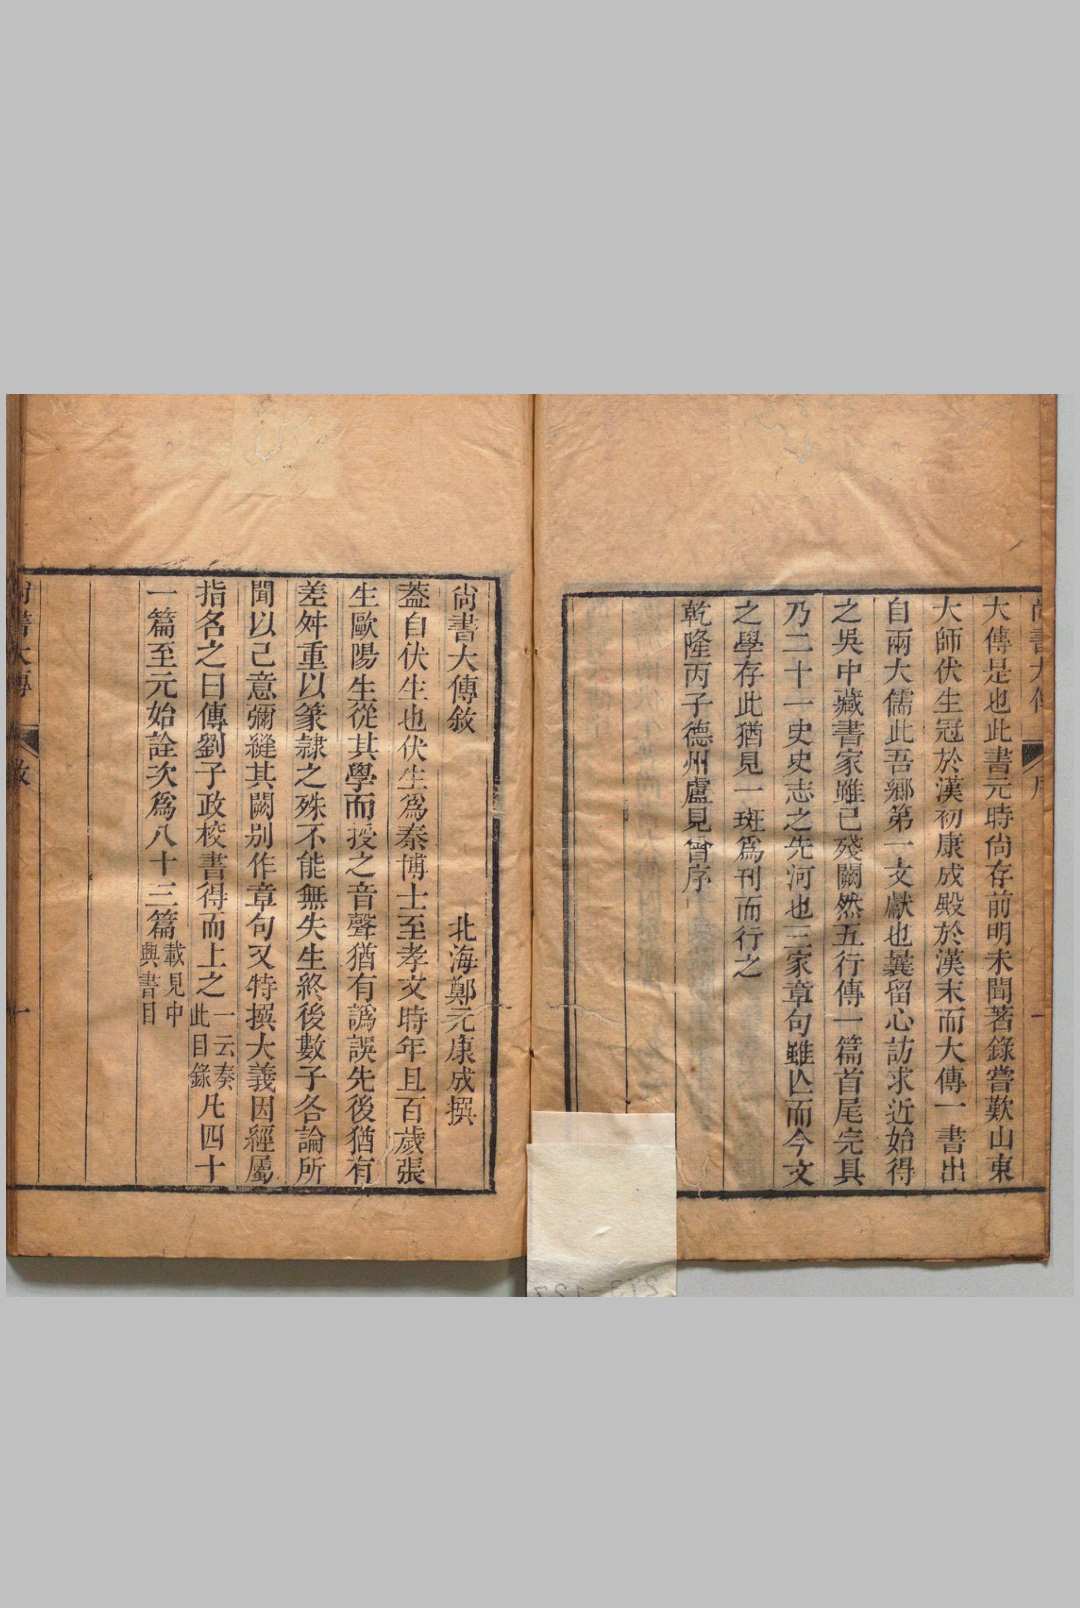 尚書大傳
序
大傳是也此書元時尚存前明未聞著錄嘗歎山東
大師伏生冠於漢初康成殿於漢末而大傳一書出
自兩大儒此吾鄉第一文獻也曩留心訪求近始得
之吳中藏書家雖已殘闕然五行傳一篇首尾完具
乃二十一史史志之先河也三家章句雖亾而今文
之學存此猶見一斑爲刊而行之
乾隆丙子德州盧見曾序
尚書大傳敘
北海鄭元康成撰
葢自伏生也伏生爲秦博士至孝文時年且百歲張
生歐陽生從其學而授之音聲猶有譌誤先後猶有
差舛重以篆隷之殊不能無失生終後數子各論所
聞以己意彌縫其闕別作章句又特撰大義因經屬
指名之曰傳劉子政校書得而上之一云奏此目錄凡四十
一篇至元始詮次爲八十三篇載見中興書目
尚書大傳
敘
一